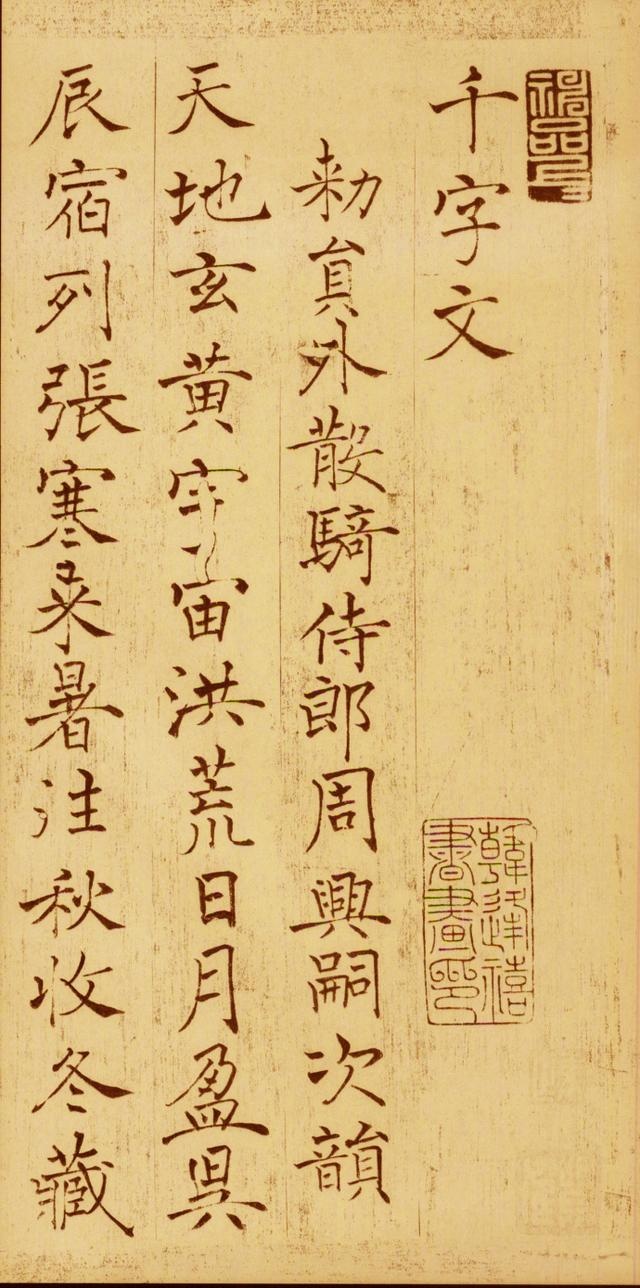 千字文
韓逢禧
書畫印
勑貟外散騎侍郎周興嗣次韻
天地玄黄宇宙洪荒日月盈昃
辰宿列張寒来暑往秋收冬藏